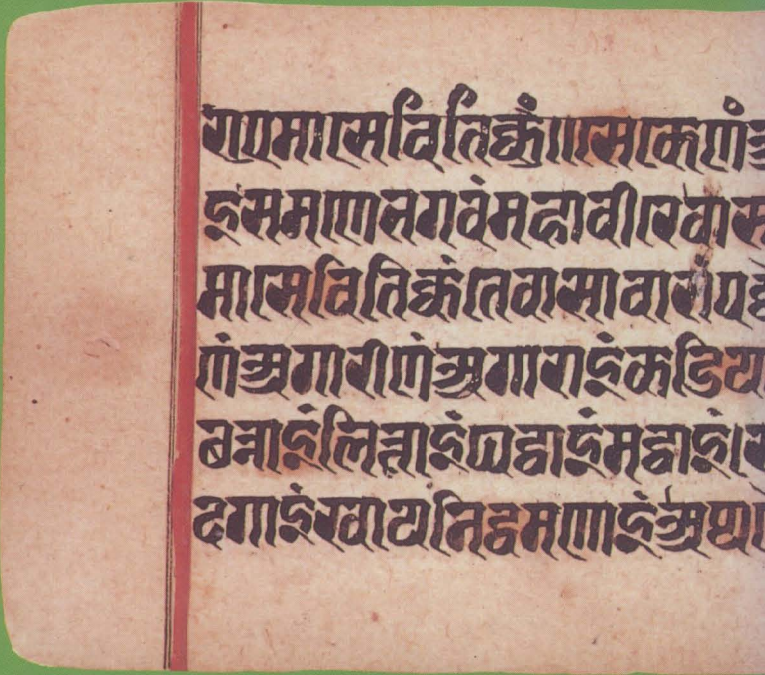 राएमासेवितिक्कं॥सेकेणं
इसमणेभगवंमहावीरेवास
मासेवितिक्कंतेवासावासंप
णंअगारीणंअगाराइंकडिया
छन्नाइंलित्ताइंघट्ठाइंमट्ठाइं
दगाइंखायनिद्धमणाइंअप्प